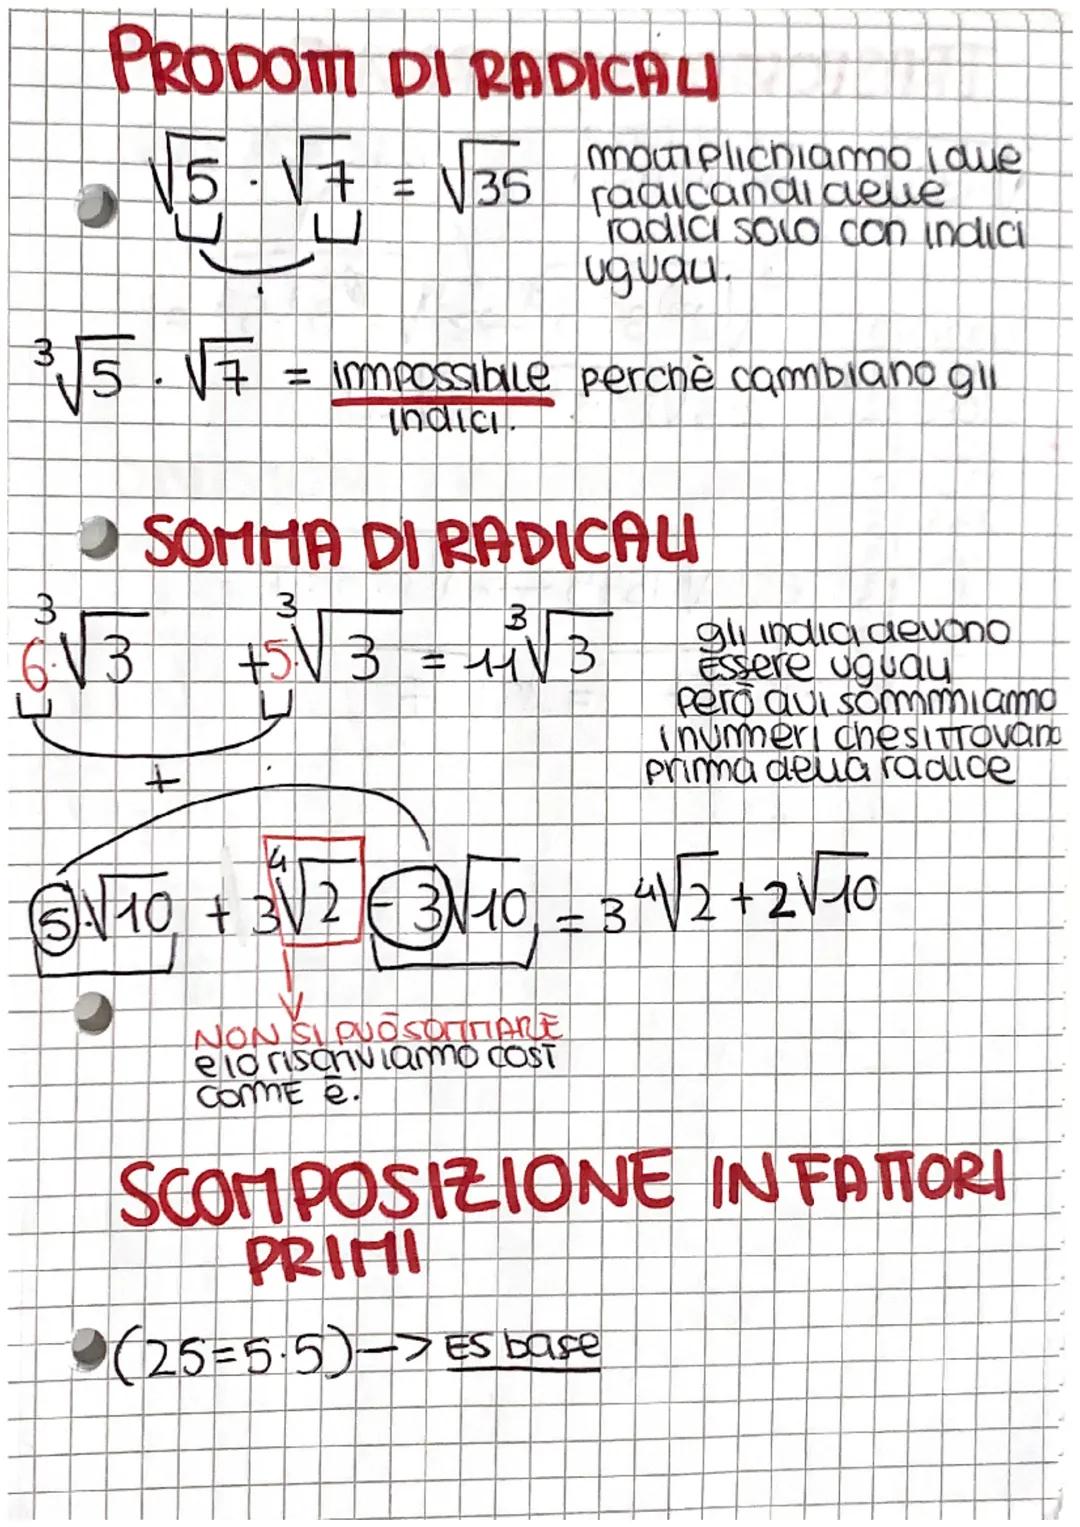 PRODOTTI DI RADICALI
√5 · √7 = √35
moltiplichiamo i due
radicandi delle
radici solo con indici
uguali.
·
³√5 · √7 = impossibile perchè cambiano gli
indici.
SOMMA DI RADICALI
6·³√3 + 5·³√3 = 11³√3
gli indici devono
Essere uguali
però qui sommiamo
i numeri che si trovano
prima della radice
+
5·√10 + 3⁴√2 - 3√10 = 3⁴√2 + 2√10
NON SI PUÒ SOMMARE
e lo riscriviamo così
come è.
SCOMPOSIZIONE IN FATTORI
PRIMI
(25=5·5)—> ES base